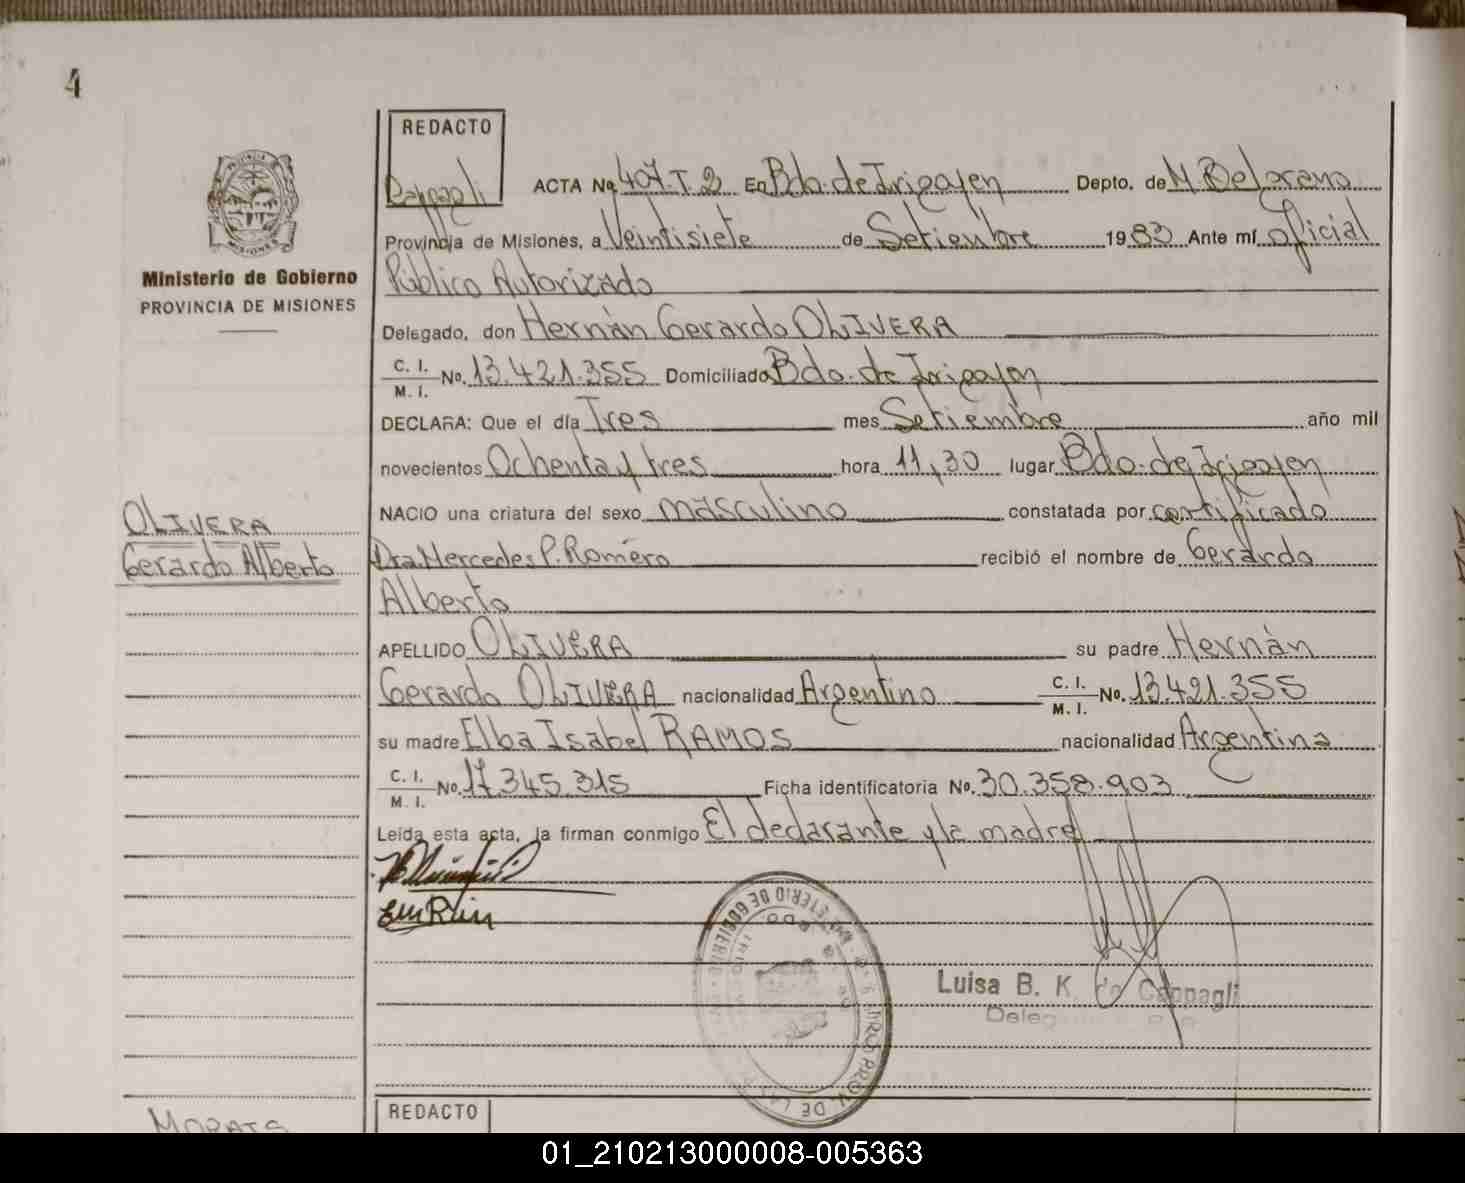 4
REDACTO
Cappagli
ACTA No. 407.T.2 En Bdo. de Irigoyen Depto. de M. Belgrano
Provincia de Misiones, a Veintisiete de Setiembre 1983 Ante mí Oficial
Público Autorizado
Delegado, don Hernàn Gerardo OLIVERA
C. I.
M. I. No. 13.421.355 Domiciliado Bdo. de Irigoyen
DECLARA: Que el día Tres mes Setiembre año mil
novecientos Ochenta y tres hora 11,30 lugar Bdo. de Irigoyen
NACIO una criatura del sexo masculino constatada por certificado
Dra. Mercedes P. Romero recibió el nombre de Gerardo
Alberto
APELLIDO OLIVERA su padre Hernàn
Gerardo OLIVERA nacionalidad Argentino C. I.
M. I. No. 13.421.355
su madre Elba Isabel RAMOS nacionalidad Argentina
C. I.
M. I. No. 17.345.315 Ficha identificatoria No. 30.358.903
Leída esta acta, la firman conmigo El declarante y la madre
Luisa B. K. de Cappagli
PROVINCIA
MISIONES
Ministerio de Gobierno
PROVINCIA DE MISIONES
OLIVERA
Gerardo Alberto
MORAIS
REDACTO
01_210213000008-005363